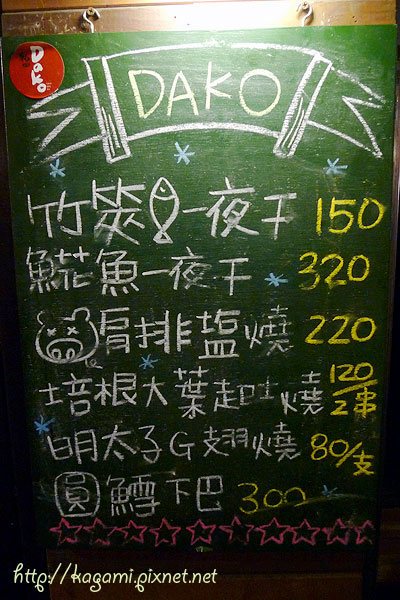 Dako
DAKO
竹筴一夜干 150
鯱魚一夜干 320
肩排塩燒 220
培根大葉起吐燒 120/2串
明太子G翅燒 80/支
圓鱈下巴 300
http://kagami.pixnet.net